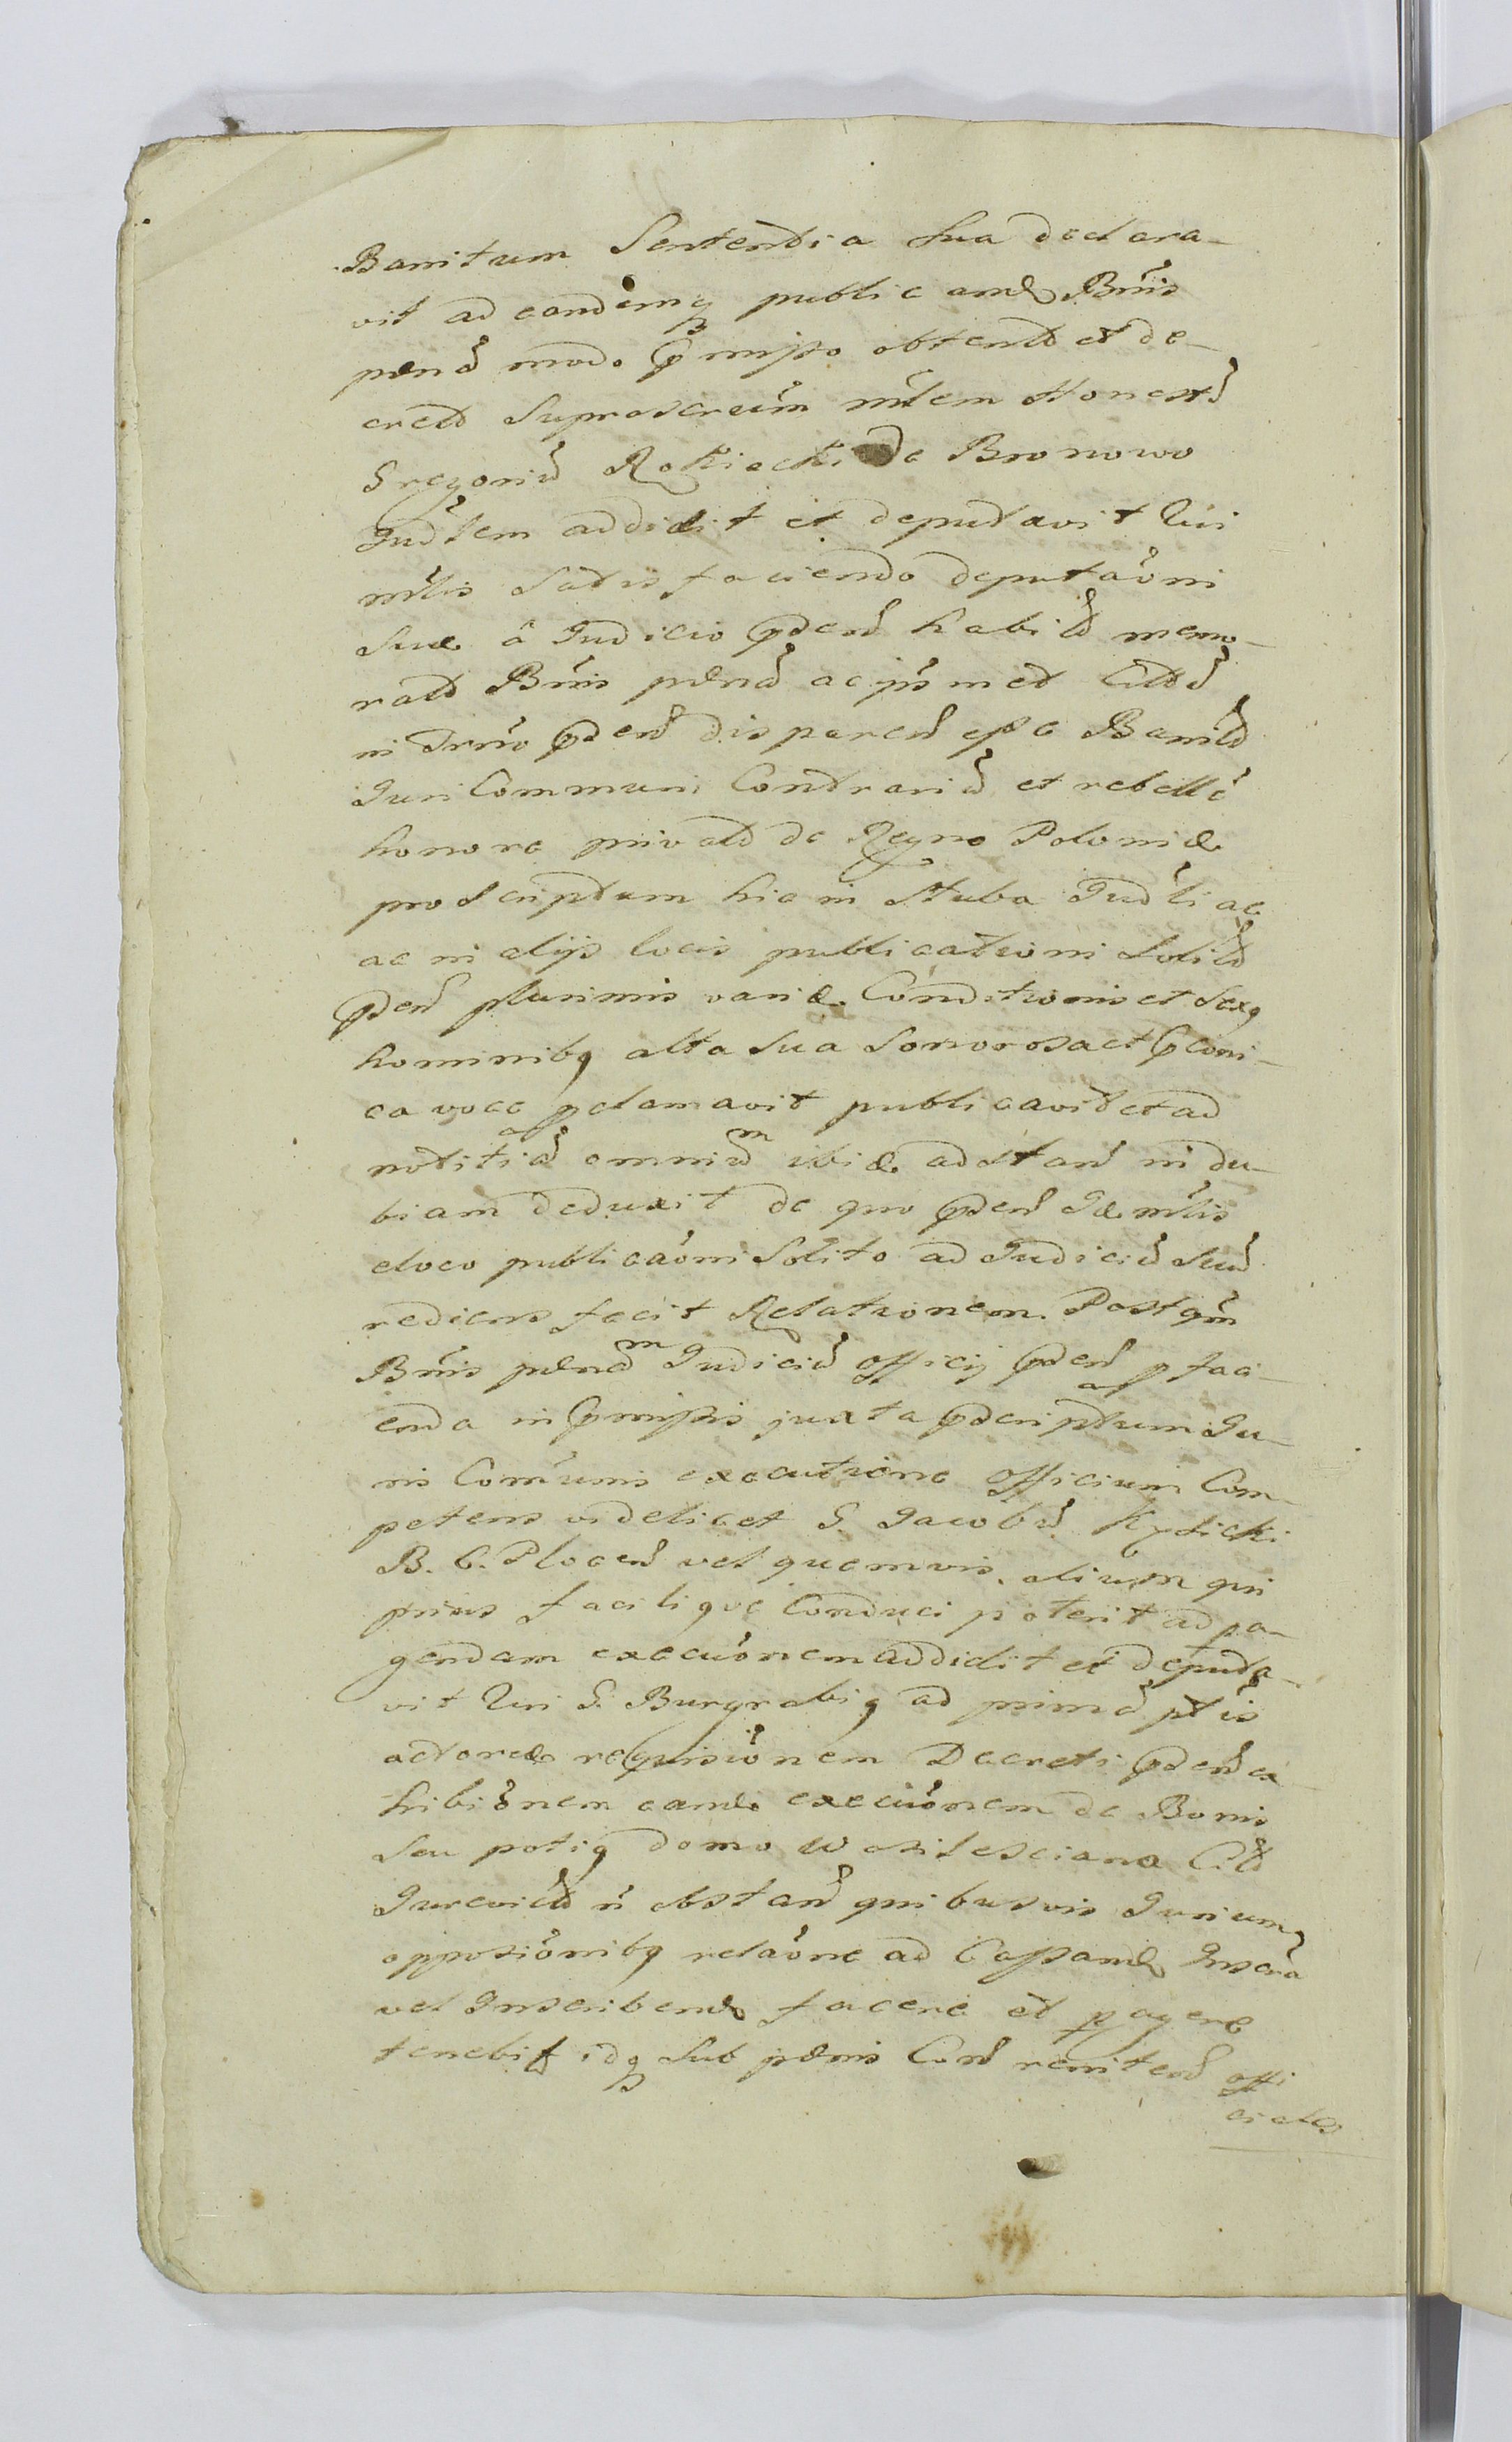 Banitum Sententia sua declara-
vit ad eandemq publicamd Bnis
pænã modo p̃misso obtentã et de-
cretã suprascreũm mlem Honestũ
Gregoriũ Rokicki de Bronowo
Judlem addidit et deputavit Qui
mlis satisfaciendo deputaõni
suæ â Judicio p̃dend habitã memo-
ratã Bnis pænã ac ipsmet Cittũ
in Trno p̃dend disparend esse Banitũ
Juri Communi Contrariũ et rebellẽ
honore privatũ de Regno Poloniæ
proscriptum hic in Stuba Judli ac
ac in alijs locis publicationi solitis
p̃dend plurimis variæ Conditionis et sexq
hominibq alta sua sonorosa et p̃coni-
ca voce pclamavit publicavit et ad
notitiã omniũm ibiæ adstand indu-
biam deduxit de quo p̃dend Jd mlis
eloco publicaõni solito ad Judiciũ suũ
rediens fecit Relationem. Post qm
Bnis pænãm Judiciũ officij p̃dend p faci-
enda in p̃missis juxta p̃scriptum Ju-
ris Comunis executione officium Com-
petens videlicet G. Jacobũ Kydicki
B. C. Plocend vel quemvis alium qui
prius facilique Conduci poterit ad pa-
gendam execuõnem addidit et deputa-
vit Qui G. Burgrabiq ad primã ptis
actoreæ requisiõnem Decreti p̃dend ex
hibiõnem eamd execuõnem de Bonis
seu potiq domo Citt
Jurevictũ ñ obstand quibusvis Jurium
oppositiõnibq relaõne ad Cassamd Inscra
vel Inscribend facere et pagere
tenebit idq sub pænis Cond renitend offi
ciales